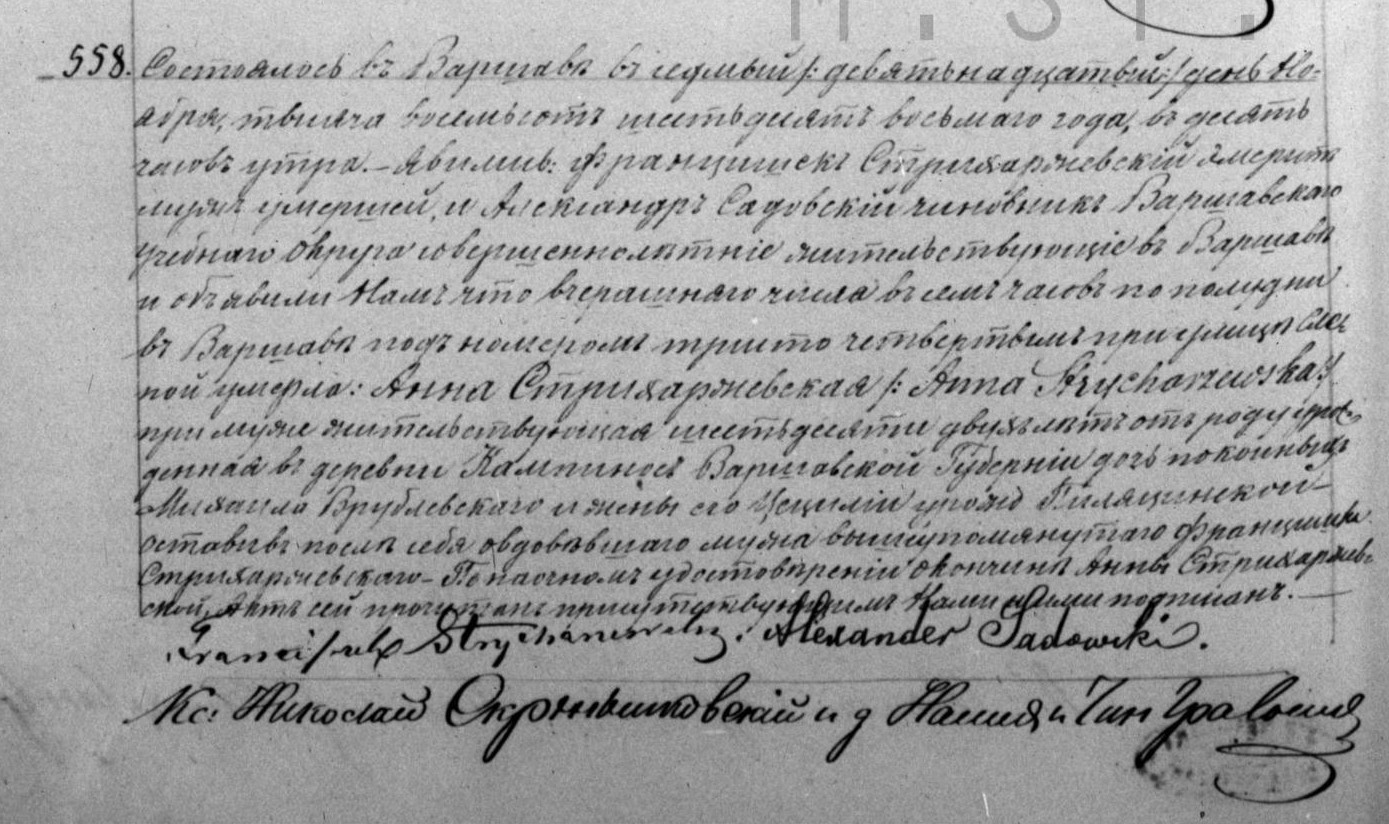 558. Состоялось въ Варшавѣ въ седмый /: девятьнадцатый :/ день Но-
ября, тысяча восемьсотъ шестьдесятъ восьмаго года, въ десять
часовъ утра. – Явились: Францишекъ Стрихаржевскій Эмеритъ
мужъ умершей, и Александръ Садовскій чиновникъ Варшавскаго
Учебнаго Округа совершеннолѣтніе жительствующіе въ Варшавѣ
и объявили Намъ что вчерашняго числа въ семъ часовъ по полюдни
въ Варшавѣ подъ номеромъ тристо четвертымъ при улицѣ
пой умерла: Анна Стрихаржевская /: Anna Strycharzewska :/
при мужѣ жительствующая шестьдесяти двухъ лѣтъ отъ роду урож-
денная въ деревни Кампиносъ Варшавской Губерніи дочь покойныхъ
Михаила Врублевскаго и жены его Цециліи урожд
оставивъ послѣ себя овдовѣвшаго мужа вышеупомянутаго Францишка
Стрихаржевскаго – По наочномъ удостовѣреніи о кончинѣ Анны Стрихаржев-
ской, Актъ сей прочитанъ присутствующимъ Нами и ими подписанъ. –
Franciszek Strycharzewski. Alexander Sadowski.
Кс: Николай и д